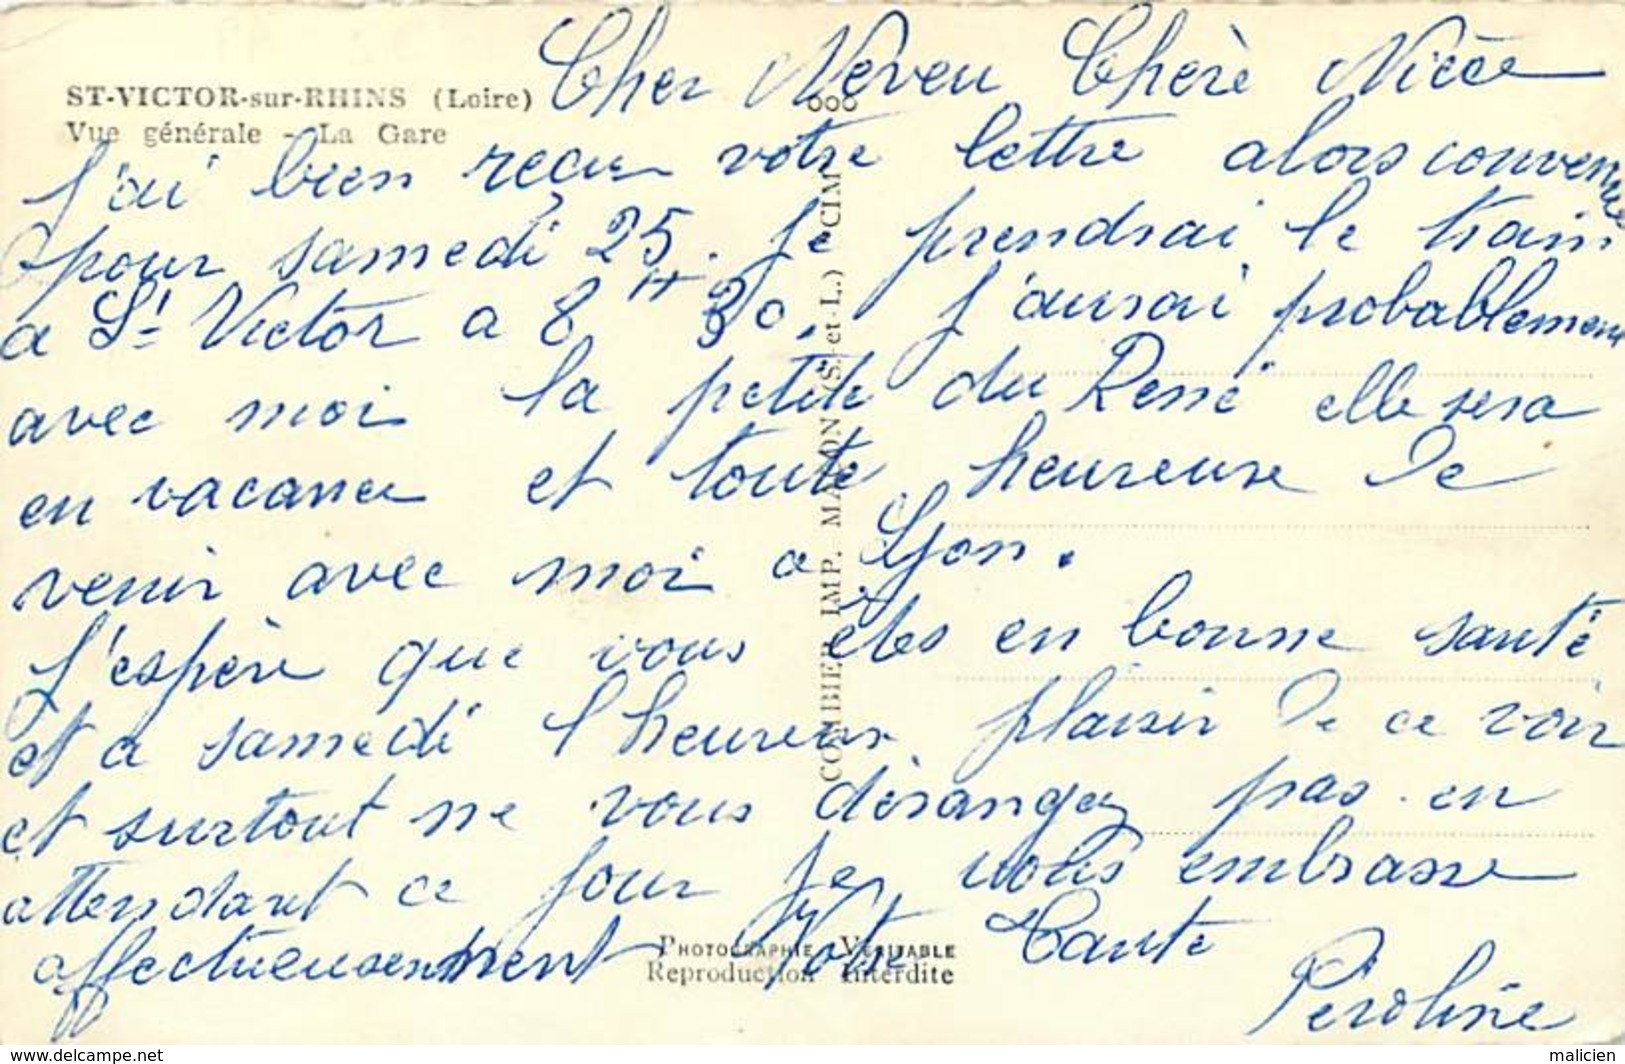 ST-VICTOR-sur-RHINS (Loire)
Vue générale - La Gare
Cher Neveu Chère Nièce
J'ai bien reçu votre lettre alors convenue
pour samedi 25. Je prendrai le train
a St Victor a 8 H 30. J'aurai probablement
avec moi la petite du René elle sera
en vacance et toute heureuse de
venir avec moi a Lyon.
J'espère que vous êtes en bonne santé
et a samedi l'heureux plaisir de ce voir
et surtout ne vous dérangez pas en
attendant ce jour je vous embrasse
affectueusement Votre Tante
Peroline
COMBIER IMP. MACON (S.-et-L.) CIM
PHOTOGRAPHIE VÉRITABLE
Reproduction Interdite
www.delcampe.net
malicien